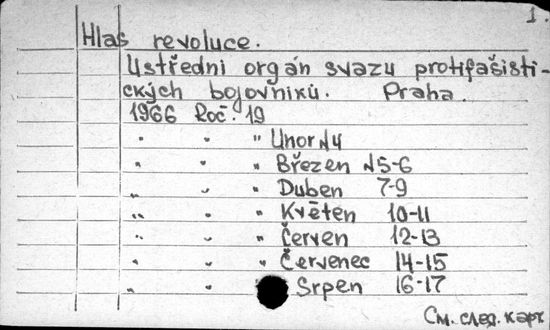 1.
Hlas revoluce.
Ustředni orgán svazu protifašisti-
ckých bojovniků. Praha.
1966 Roč. 19
" " " Unor N4
" " " Březen N5-6
" " " Duben 7-9
" " " Květen 10-11
" " " Červen 12-13
" " " Červenec 14-15
" " Srpen 16-17
См. след. карт